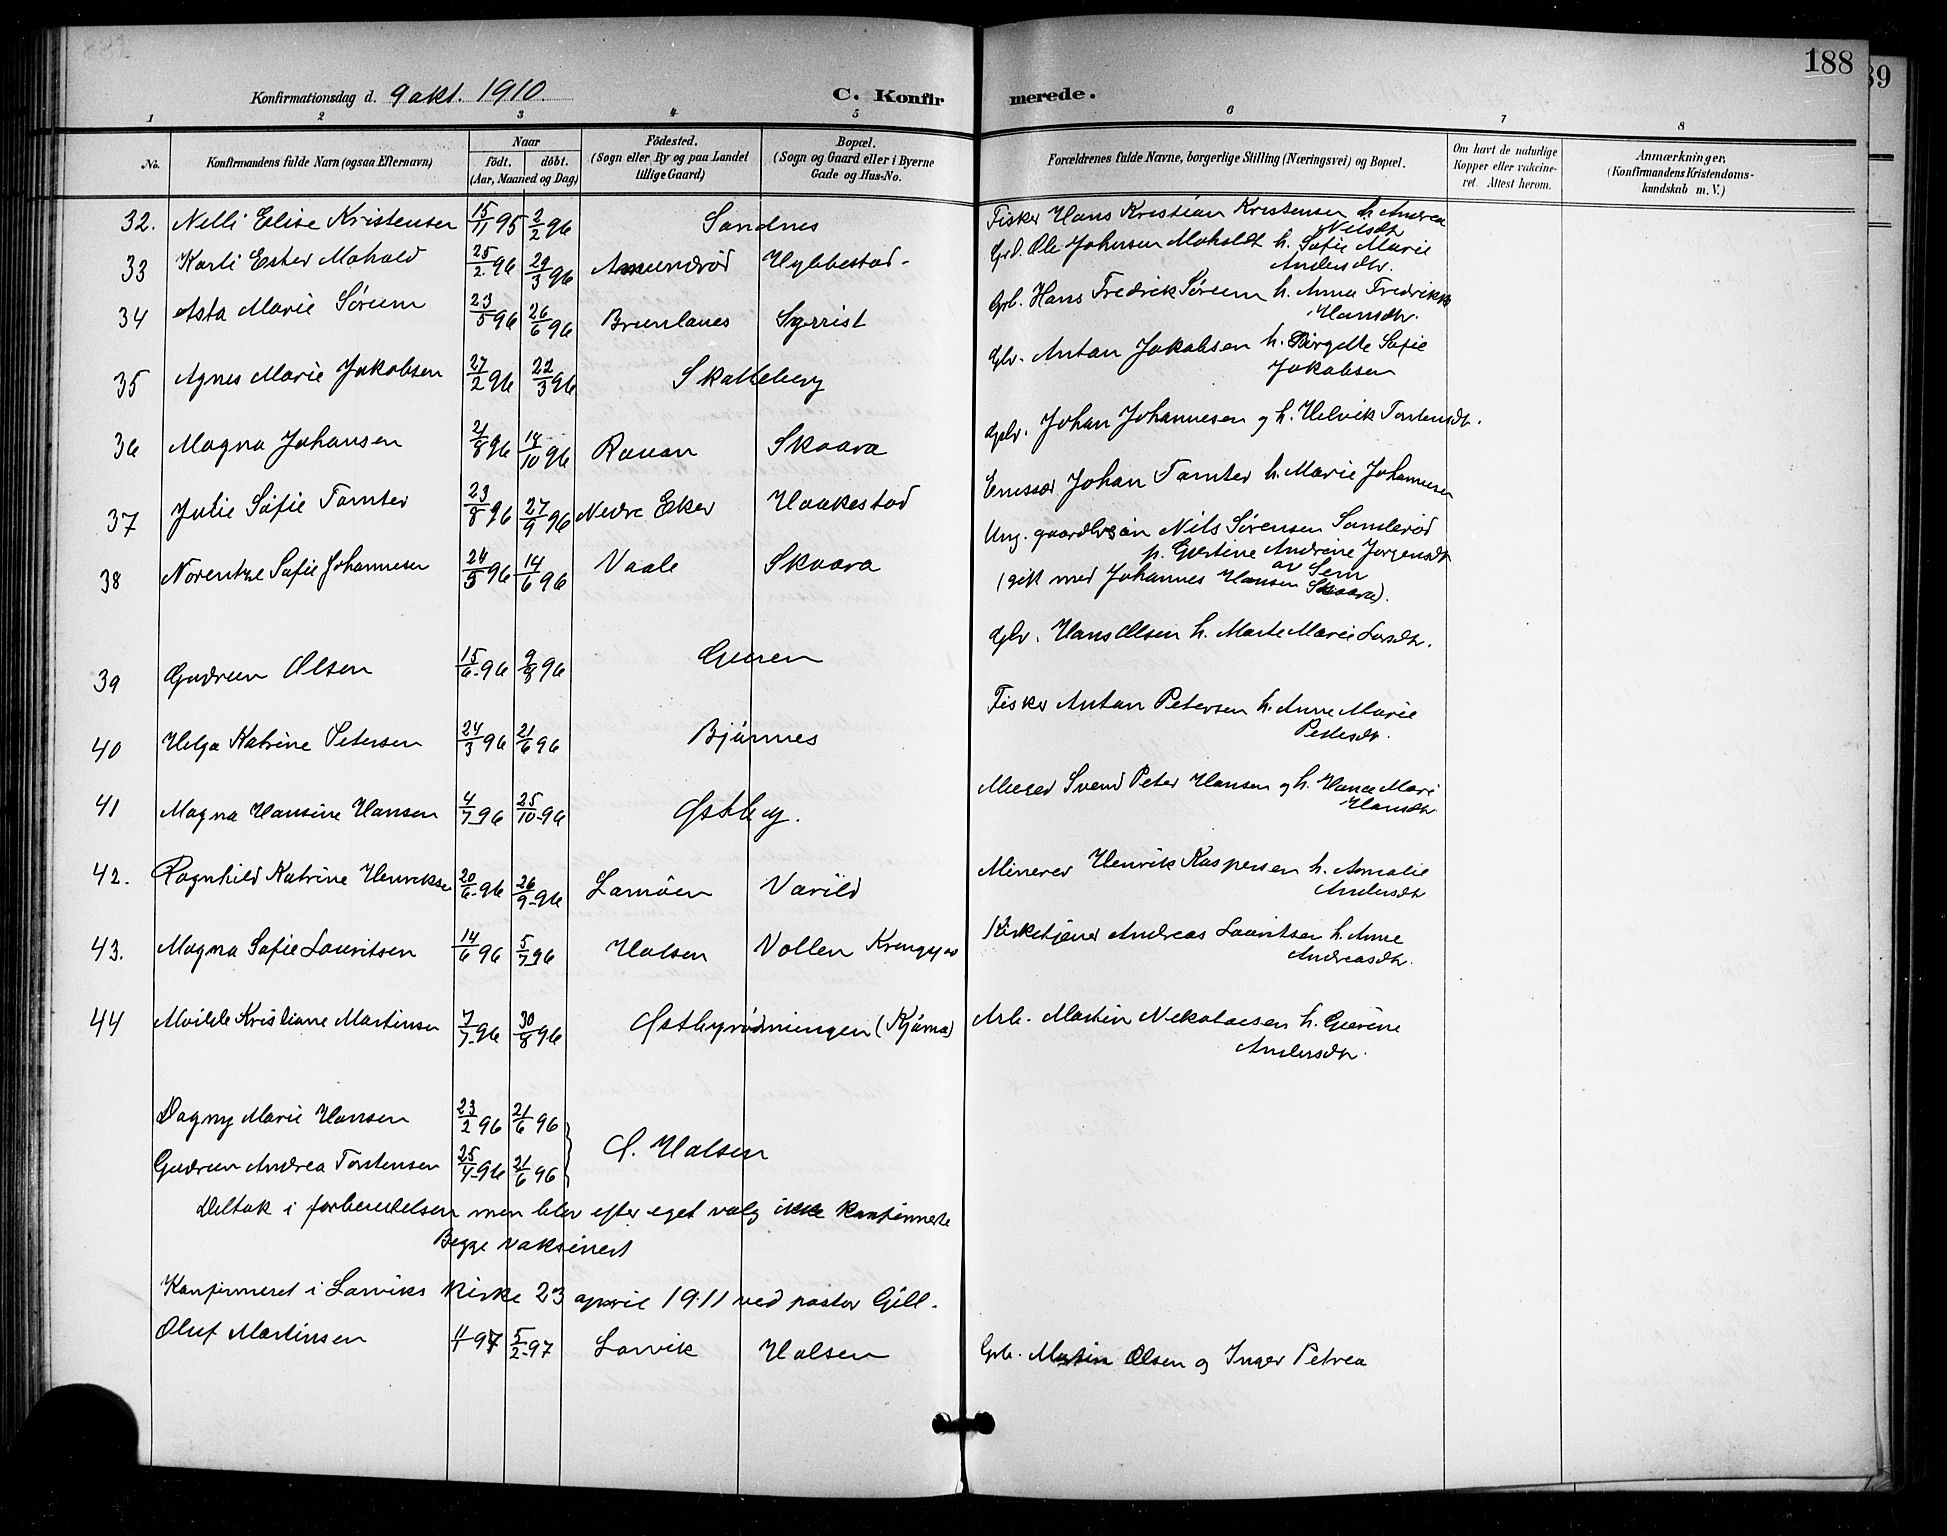 188
89
Konfirmationsdag d. 9 okt. 1910. C. Konfirmerede.
1 2 3 4 5 6 7 8
No. Konfirmandens fulde Navn (ogsaa Efternavn) Naar født. døbt. (Aar, Maaned og Dag) Fødested. (Sogn eller By og paa Landet tillige Gaard) Bopæl. (Sogn og Gaard eller i Byerne Gade og Hus-No. Forældrenes fulde Navne, borgerlige Stilling (Næringsvei) og Bopæl. Om havt de naturlige Kopper eller vakcineret. Attest herom. Anmærkninger. (Konfirmandens Kristendomskundskab m. V.)
32. Nelli Elise Kristensen 15/11 95 2/2 96 Sandnes Fisker Hans Kristian Kristensen h. Andrea Nilsdtr
33 Karli Ester Mohold 25/2 96 29/3 96 Amundrød Hybbestad Grd. Ole Johnsen Moholdt h. Sofie Marie Andersdtr.
34 Asta Marie Sørum 23/5 96 26/6 96 Brunlanes Sgerrist Grb. Hans Fredrik Sørum h. Anna Fredrikke Hansdtr.
35 Agnes Marie Jakobsen 27/2 96 22/3 96 Skalleberg Glv. Anton Jakobsen h. Birgette Sofie Jakobsen
36 Magna Johansen 21/8 96 18/10 96 Rauan Skaara Johan Johannesen og h. Helvik Torstensdtr.
37 Julie Sofie Tamter 23/8 96 27/9 96 Nedre Eker Haakestad Emissær Johan Tamter h. Marie Johannesen
38 Norentze Sofie Johannesen 24/5 96 14/6 96 Vaale Skaara Ung. gaardbrsøn Nils Sørensen Sanderød
p. Gurtine Andrine Jørgensdtr av Sem
(gik med Johannes Hansen Skaara).
39 Gudrun Olsen 15/6 96 9/8 96 Guren Glv. Hans Olsen h. Marte Marie Larsdtr.
40 Helga Katrine Petersen 24/3 96 21/6 96 Bjønnes Fisker Anton Petersen h. Anne Marie Pedersdtr.
41 Magna Hansine Hansen 4/7 96 25/10 96 Østby. Murer Svend Peter Hansen og h. Hanna Mari Hansdtr
42. Ragnhild Katrine Henriksen 20/6 96 26/9 96 Lamøen Varild Minerer Henrik Kaspersen h. Amalie Andersdtr
43. Magna Sofie Lauritsen 14/6 96 5/7 96 Halsen Vollen Kirketjener Andreas Lauritsen h. Anne Andreasdtr.
44 Moilde Kristiane Martinsen 7/7 96 30/8 96 Østbyrødningen (Kjøma) Arb. Martin Nikolaesen h. Gurine Andersdtr.
Dagny Marie Hansen 23/2 96 21/6 96
Gudrun Andrea Torstensen 25/4 96 21/6 96 Ø. Halsen
Deltok i forberedelsen men blev efter eget valg ikke konfirmerte
Begge vaksinert
Konfirmeret i Larviks kirke 23 april 1911 ved pastor Gill.
Oluf Martinsen 1/1 97 5/2 97 Larvik Halsen Grb. Martin Olsen og Inger Petrea